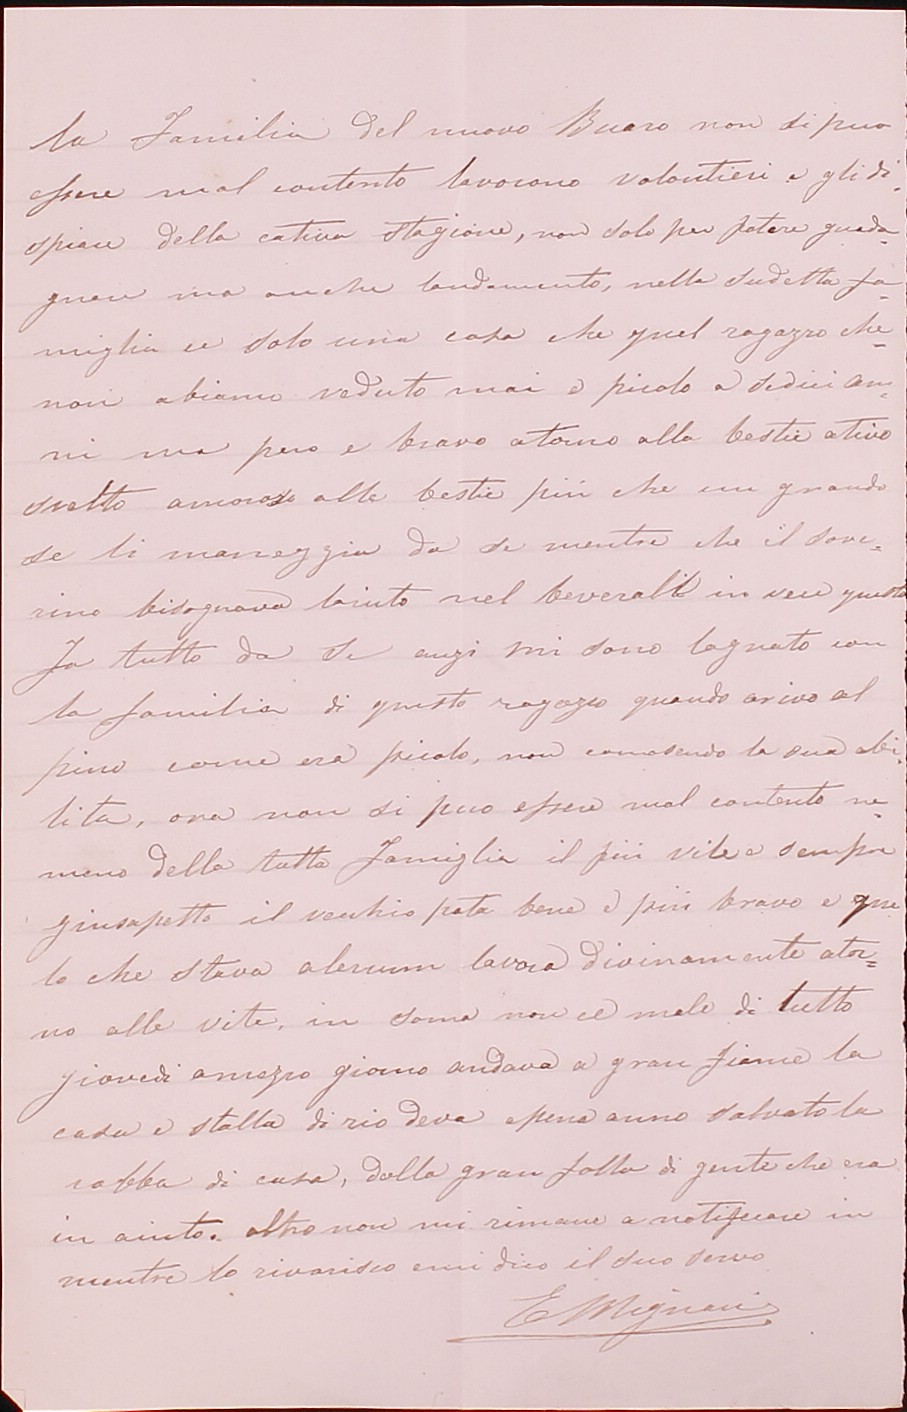 la Familia del nuovo Buaro non si puo
essere mal contento lavorono volontieri e gli di-
spiace della cativa stagione, non solo per potere guada-
gnare ma anche landamento, nella sudetta fa-
miglia ce solo una cosa che quel ragazzo che
non abiamo veduto mai e picolo a sedici an-
ni ma pero e bravo atorno alle bestie ativo
svelto amoroso alle bestie più che un grande
se li maneggia da se mentre che il Seve-
rino bisognava laiuto nel beverali in vece questo
fa tutto da se anzi mi sono lagnato con
la familia di questo ragazzo quando arivo al
pino come era picolo, non conosendo la sua abi-
lita, ora non si puo essere mal contento ne-
meno della tutta Famiglia il più vile e sempre
giusapetto il vechio pota bene e più bravo e que
lo che stava lavora divinamente ator-
no alle vite, in soma non ce male di tutto
giovedi amezzo giorno andava a gran fiame la
casa e stalla di rio Deva apena anno salvato la
robba di casa, dalla gran folla di gente che era
in aiuto. altro non mi rimane a notificare in
mentre lo riverisco emi dico il suo servo
E Mignani